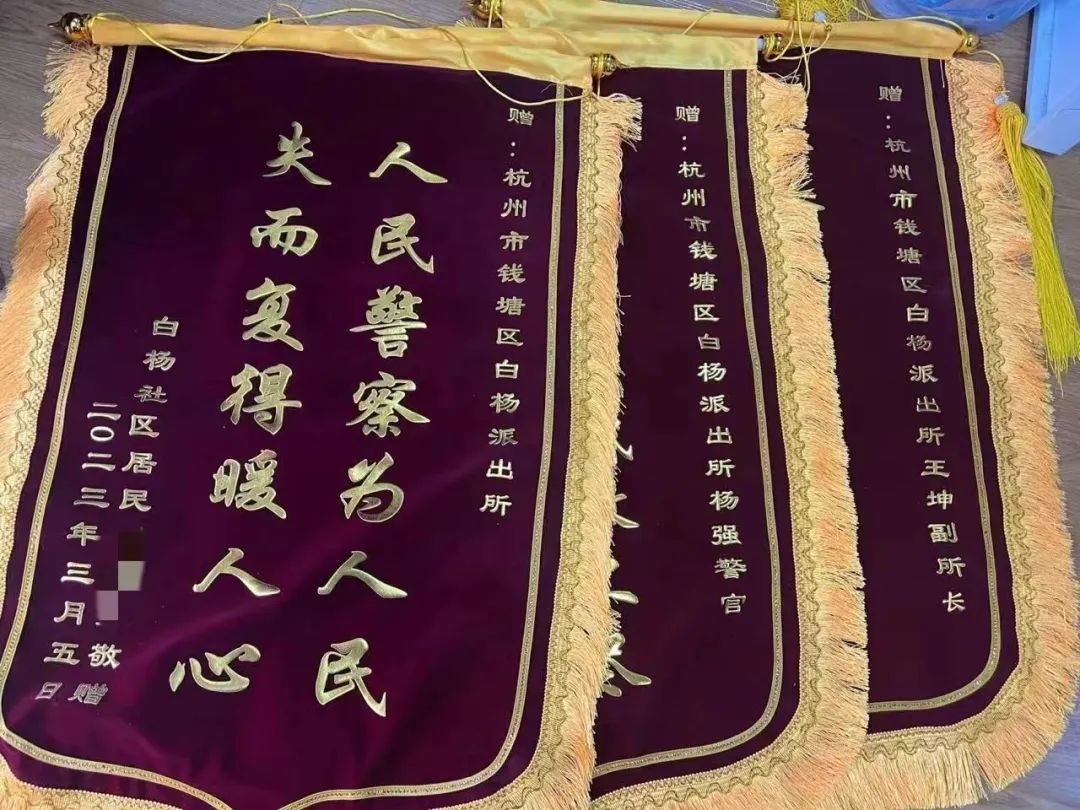 赠：杭州市钱塘区白杨派出所
人民警察为人民
失而复得暖人心
白杨社区居民
敬赠
二〇二三年三月五日
赠：杭州市钱塘区白杨派出所杨强警官
赠：杭州市钱塘区白杨派出所王坤副所长